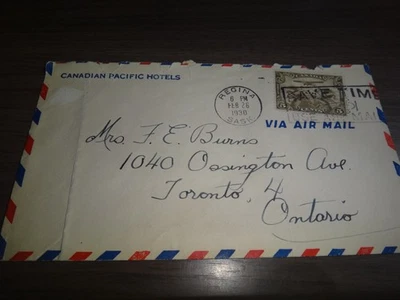 CANADIAN PACIFIC HOTELS
REGINA
6 PM
FEB 26
1930
SASK.
TIME
VIA AIR MAIL
Mrs F. E. Burns
1040 Ossington Ave.
Toronto, 4
Ontario